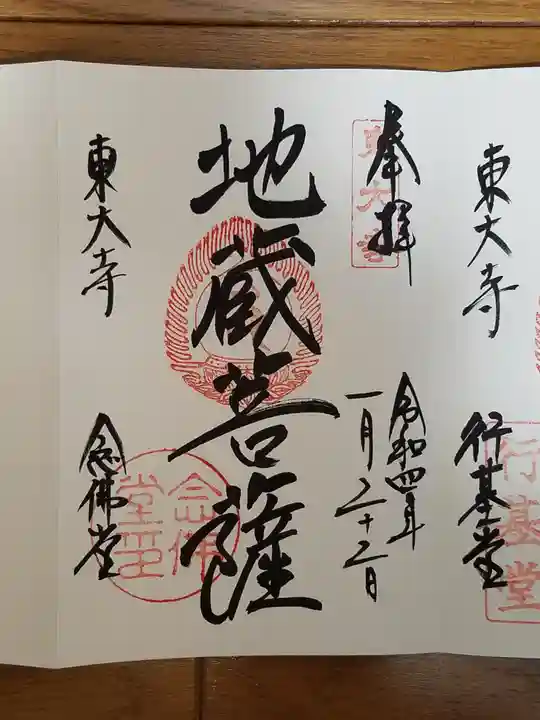 東大寺
行基堂
行基堂
奉拝
東大寺
令和四年
一月二十二日
地蔵菩薩
東大寺
念佛堂
念佛堂印